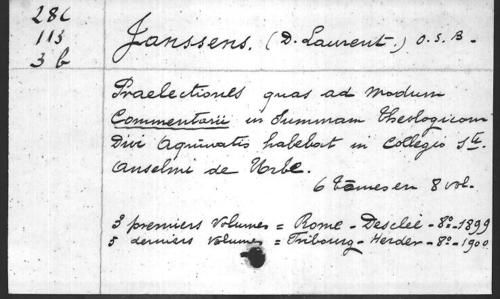 286
113
3 b
Janssens. (D. Laurent.) O. S. B.
Praelectiones quas ad modum
Commentarii in Summam theologicam
Divi Aquinatis habebat in Collegio Sti.
Anselmi de Urbe.
6 tômes en 8 vol.
3 premiers Volumes = Rome - Desclée - 8º - 1899
5 derniers Volumes = Fribourg - Herder - 8º - 1900